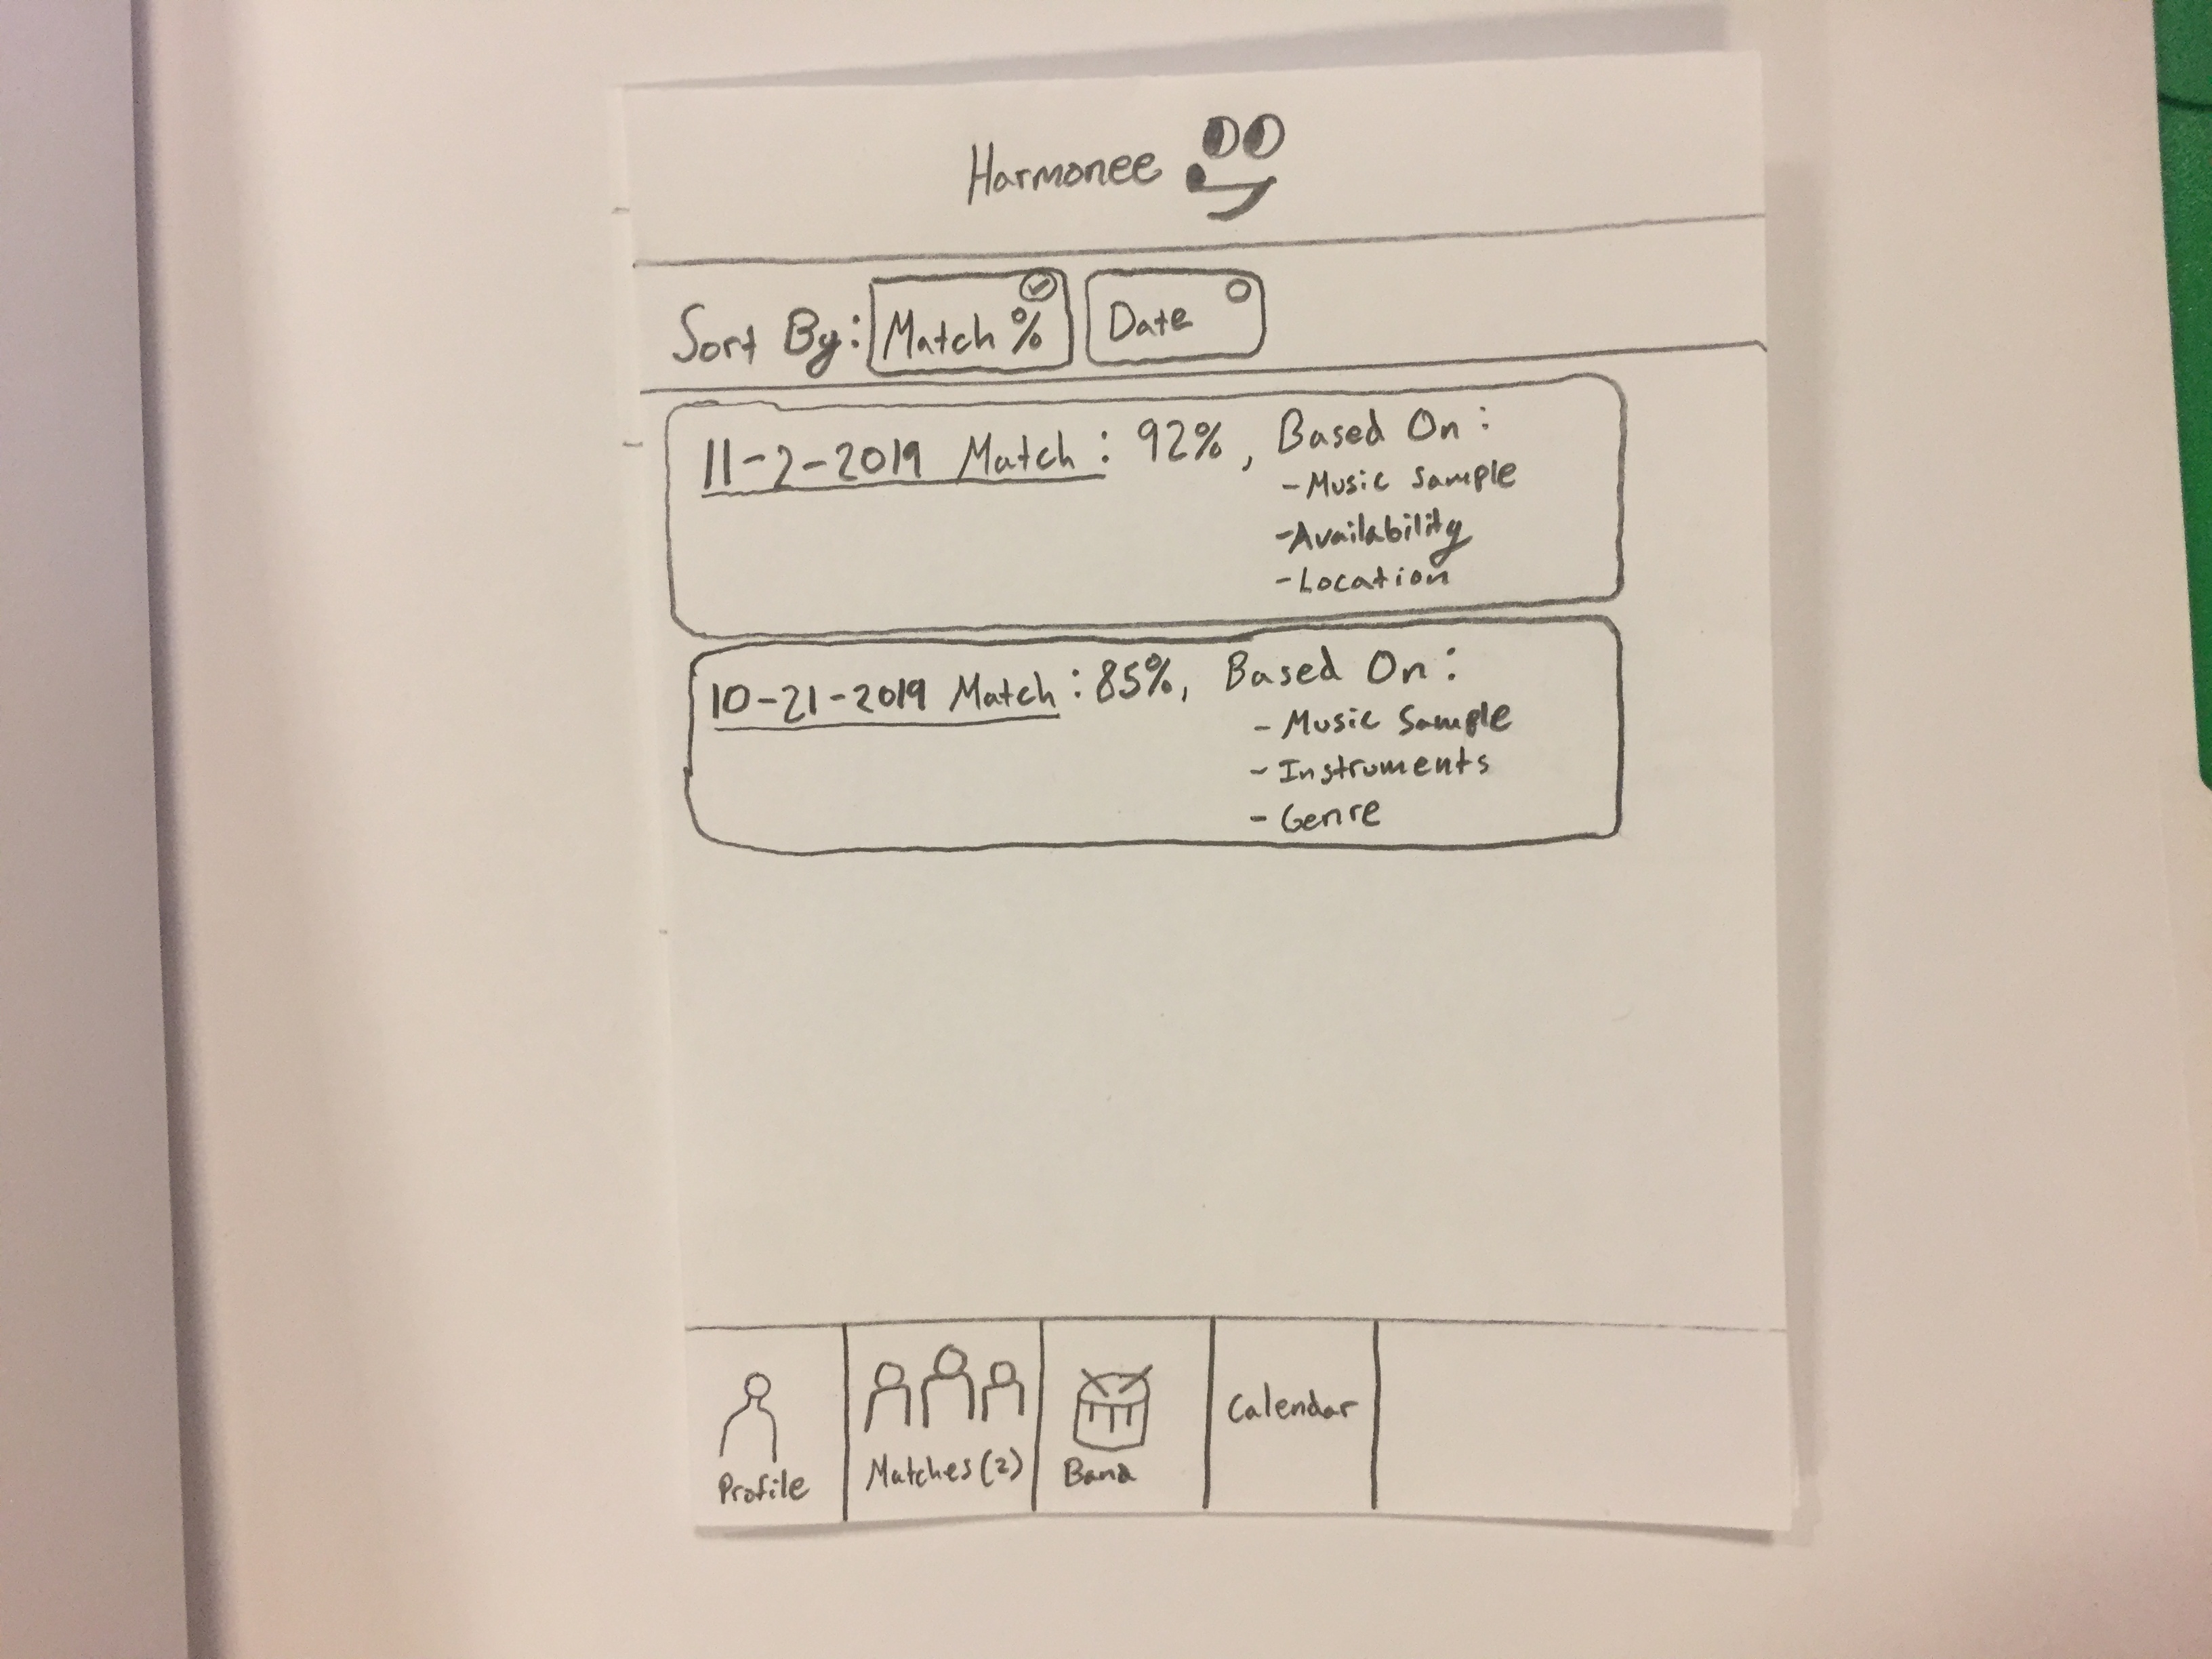 Harmonee
Sort By: Match % Date
11-2-2019 Match: 92%, Based On:
- Music Sample
- Availability
- Location
10-21-2019 Match: 85%, Based On:
- Music Sample
- Instruments
- Genre
Profile Matches (2) Band Calendar